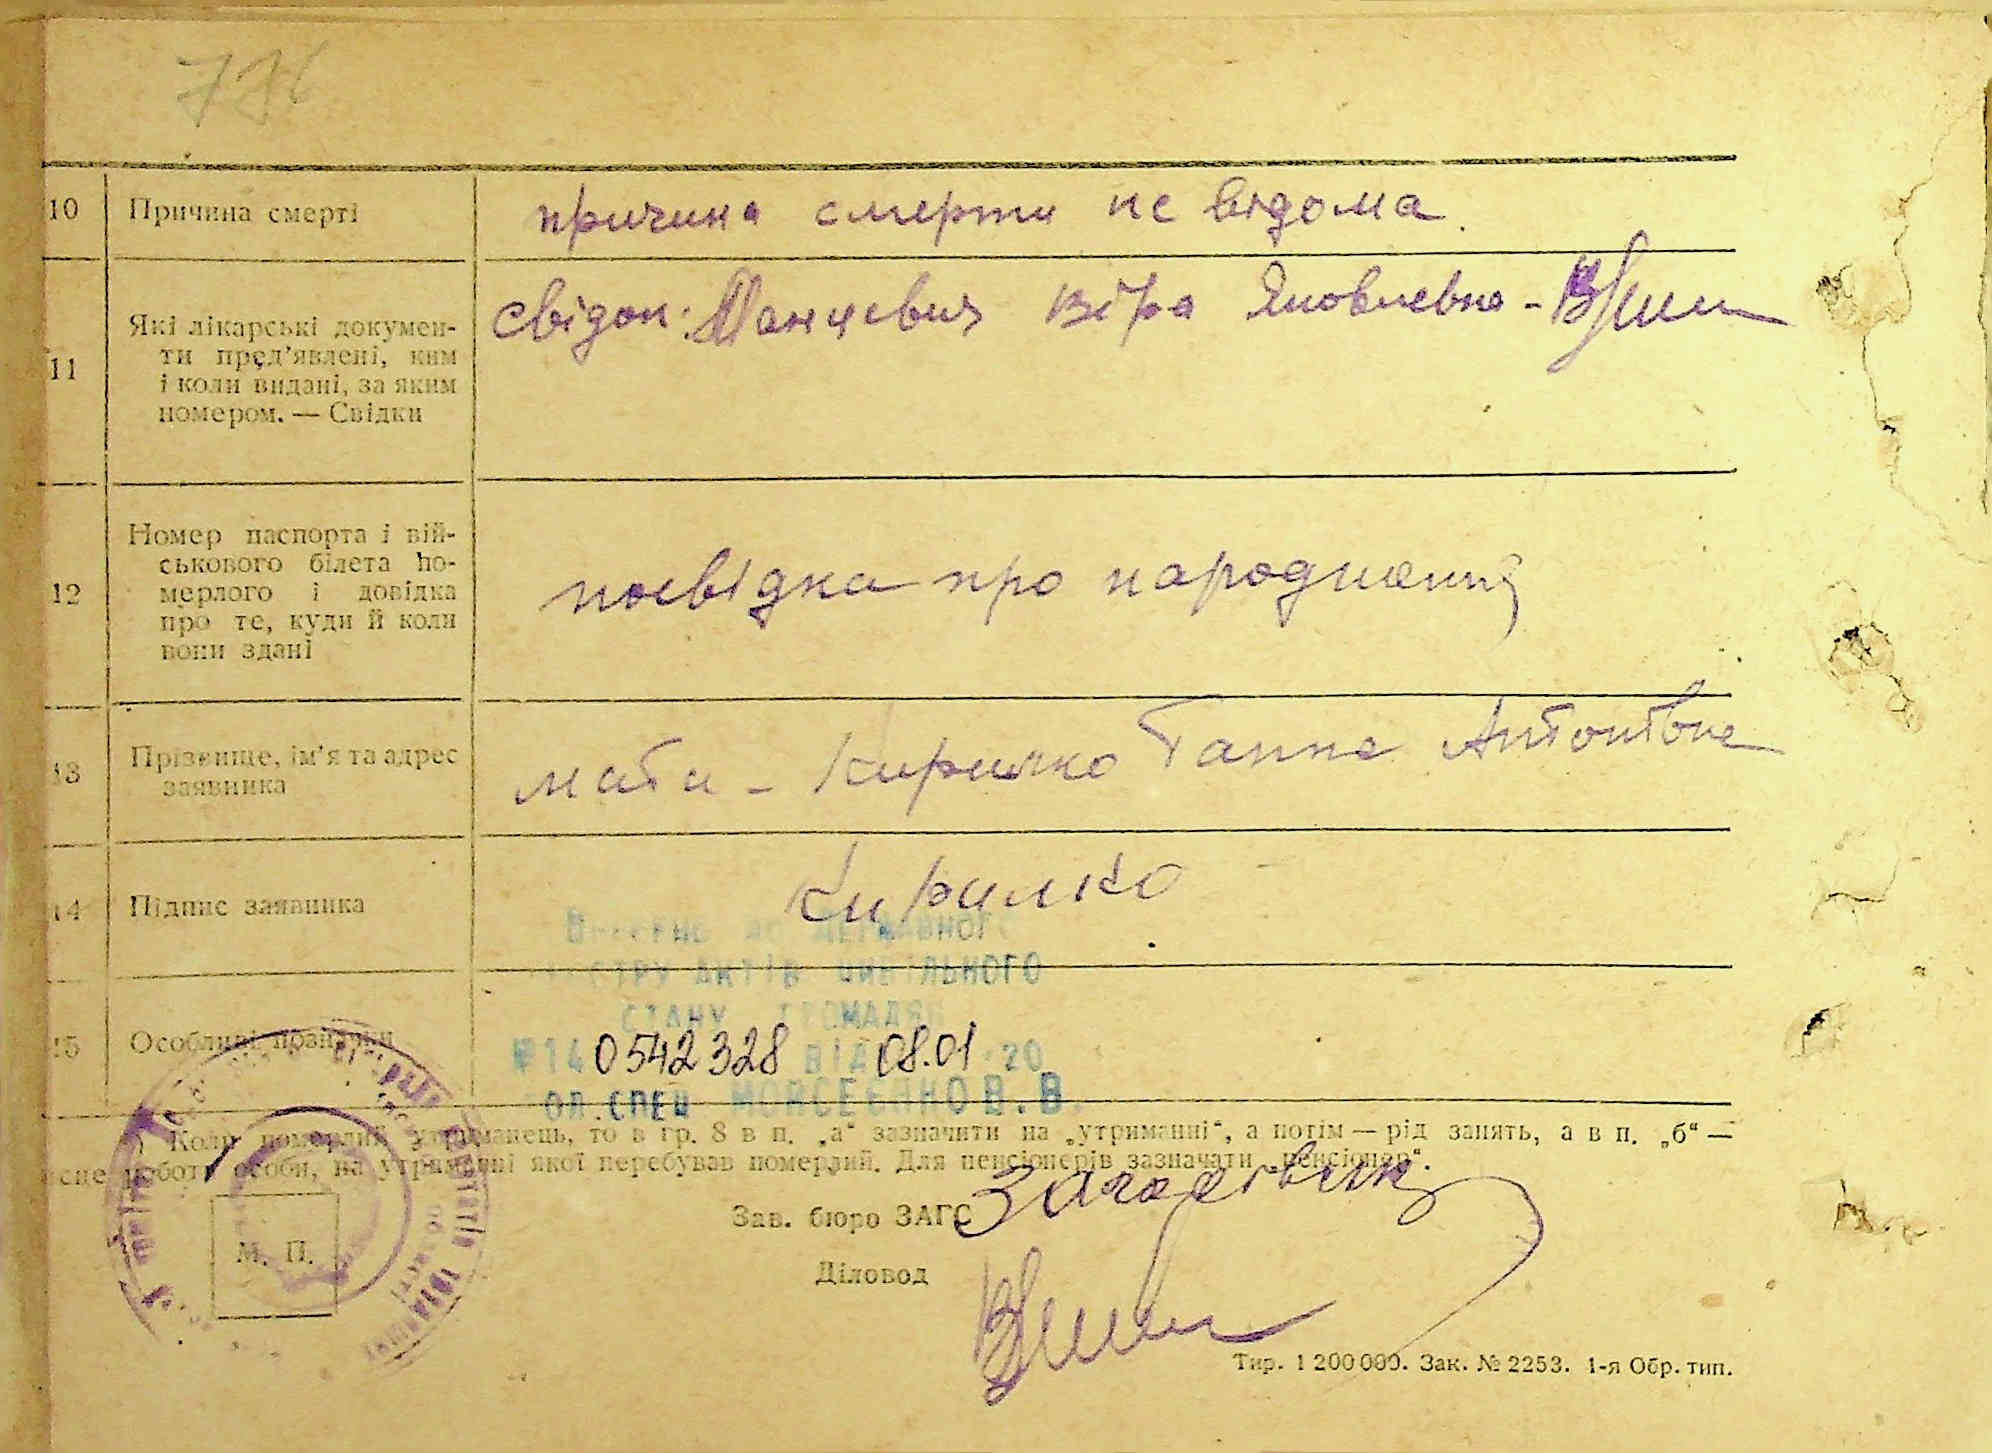 10 Причина смерті причина смерти не відома.
11 Які лікарські докумен-
ти пред'явлені, ким
і коли видані, за яким
номером. — Свідки
свідок: Манцевич Віра Яковлевна -
12 Номер паспорта і вій-
ськового білета по-
мерлого і довідка
про те, куди й коли
вони здані
посвідка про народження
13 Прізвище, ім'я та адрес
заявника
мати - Кирилко Ганна Антонівна
14 Підпис заявника Кирилко
Внесено до Державного
реєстру актів цивільного
стану громадян
15 Особливі позначки
№14 0542328 від 08.01 20
гол.спец Моисеєнко В.В.
) Коли померлий утриманець, то в гр. 8 в п. „а“ зазначити на „утриманні“, а потім — рід занять, а в п. „б“ —
роботи особи, на утриманні якої перебував померлий. Для пенсіонерів зазначати „пенсіонер“.
Зав. бюро ЗАГС
Діловод
М. П.
Тир. 1 200 000. Зак. № 2253. 1-я Обр. тип.